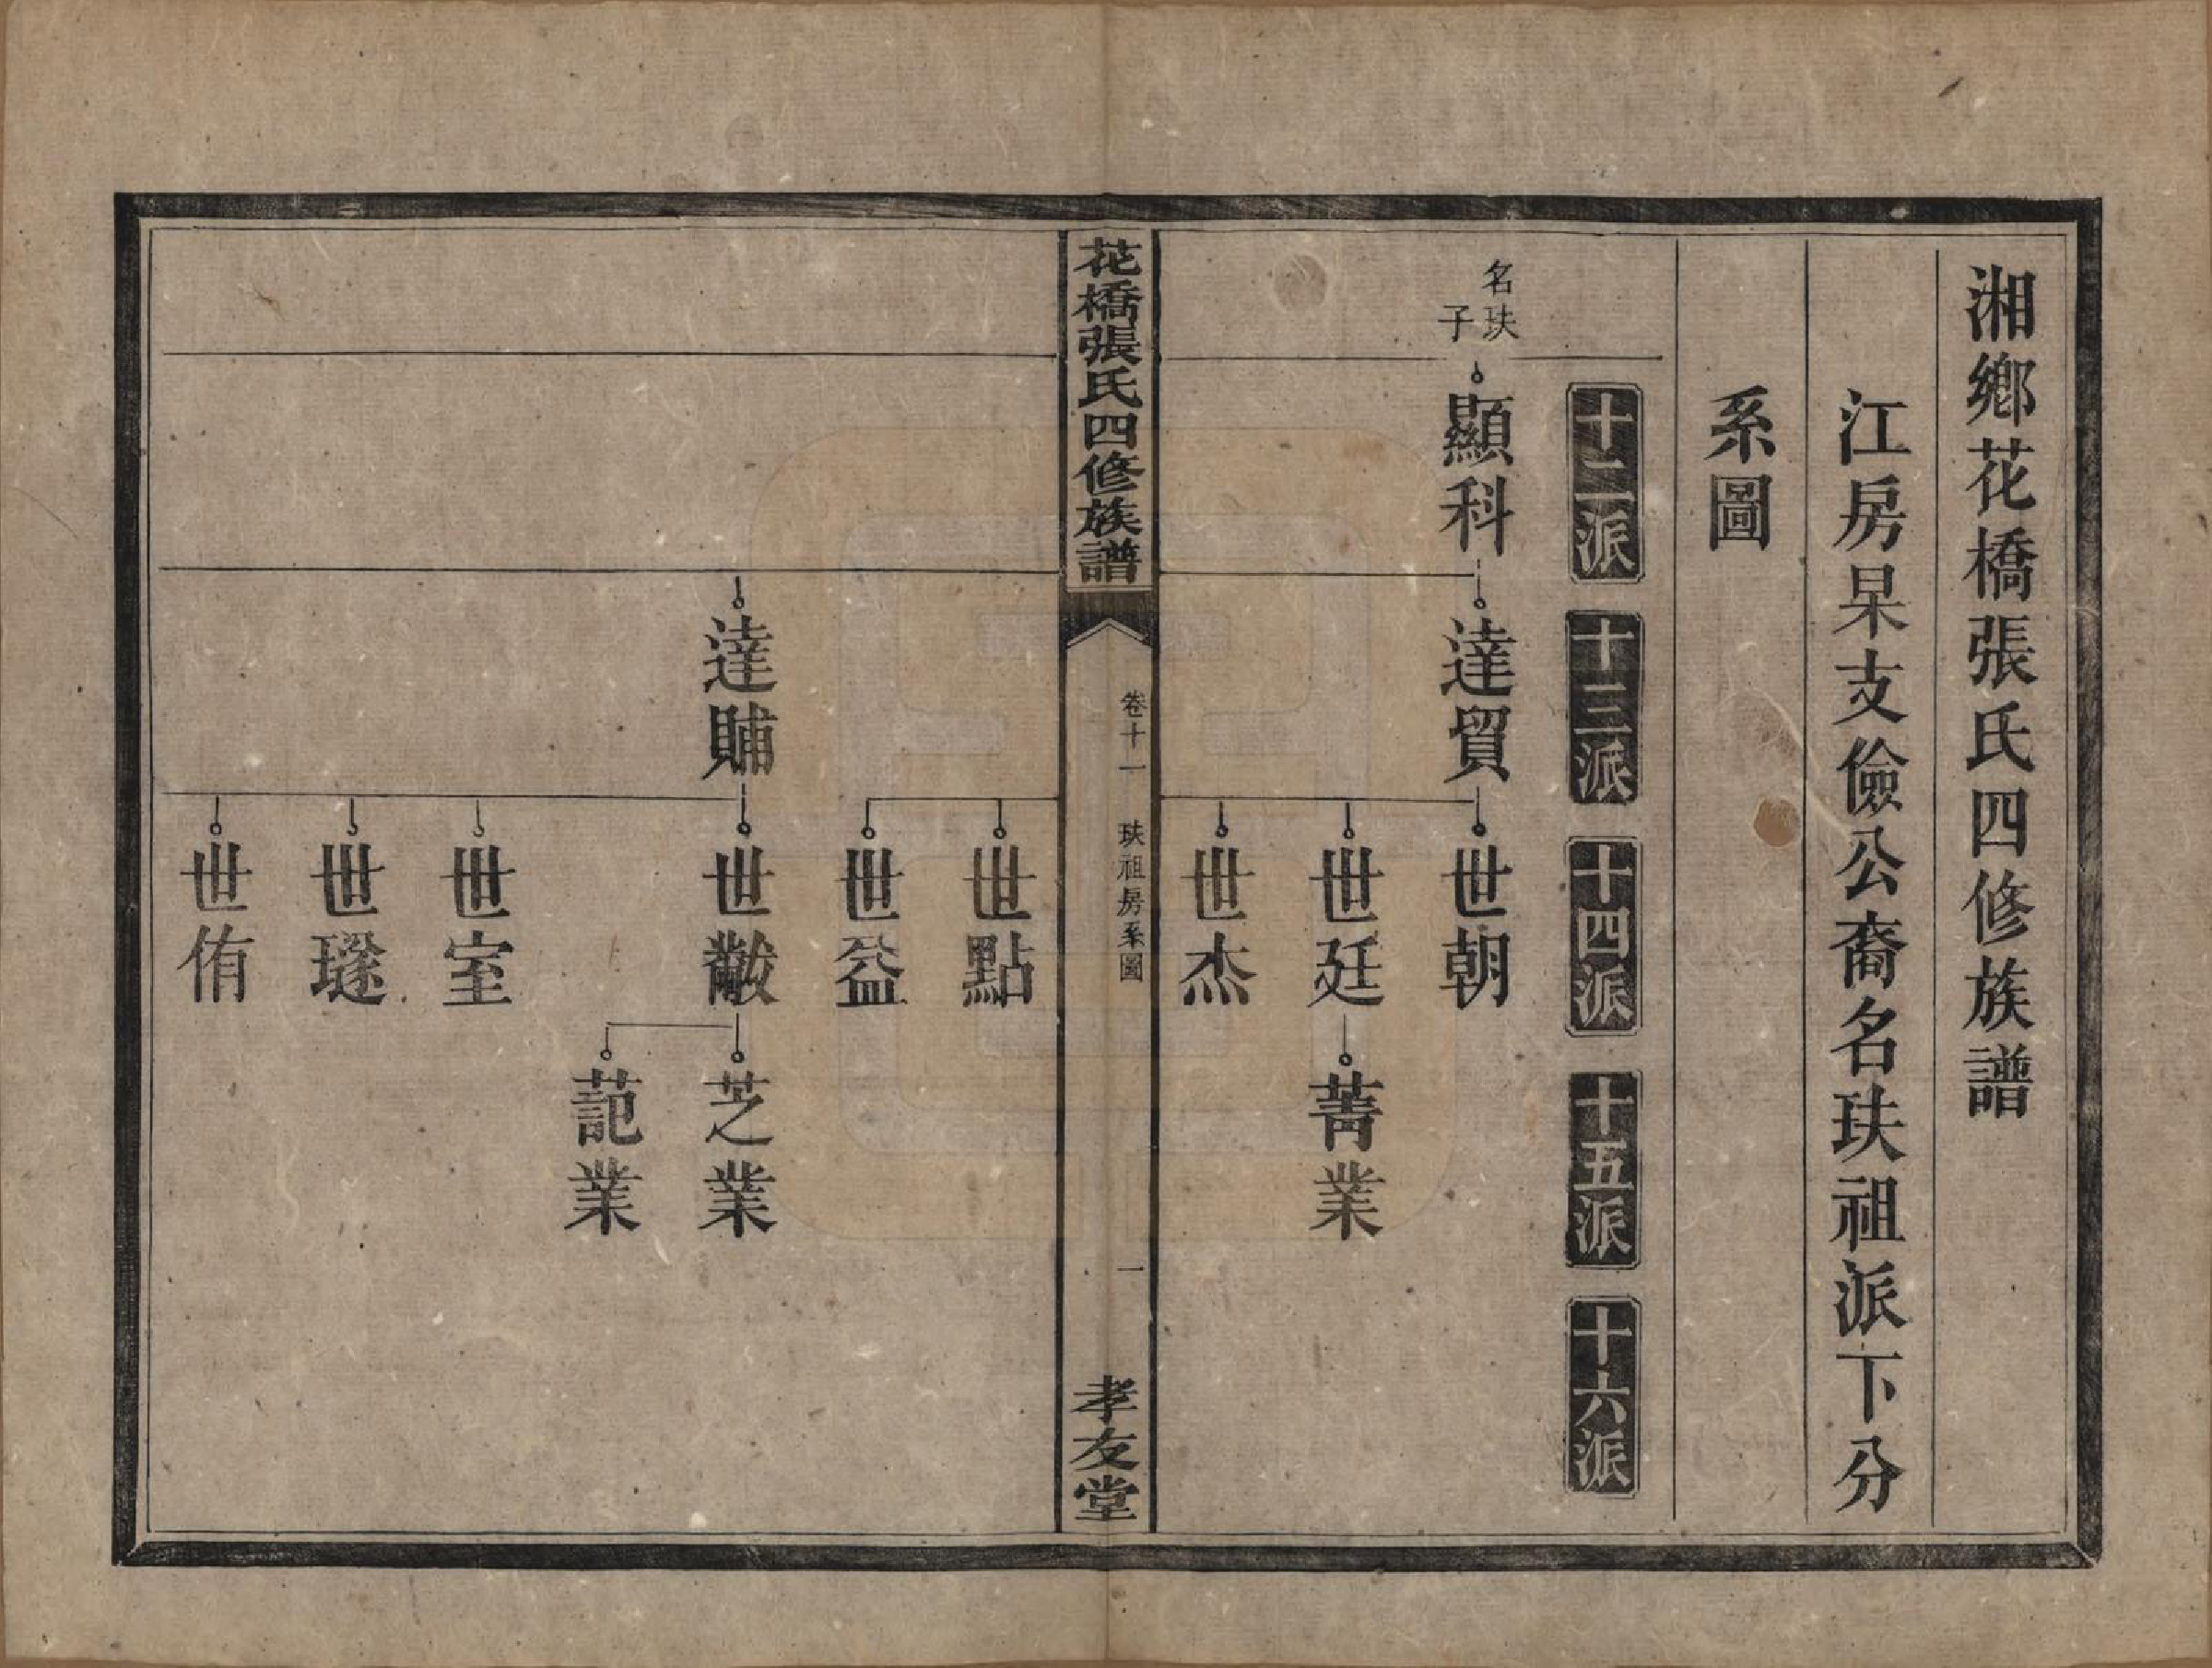 湘鄉花橋張氏四修族譜
江房杲支儉公裔名玞祖派下分
系圖
十二派
十三派
十四派
十五派
十六派
名玞
子
顯科
達貿
世朝
世廷
菁業
世杰
花橋張氏四修族譜
卷十一
玞祖房系圖
一
孝友堂
世點
世益
達賻
世黻
芝業
範業
世室
世璲
世侑